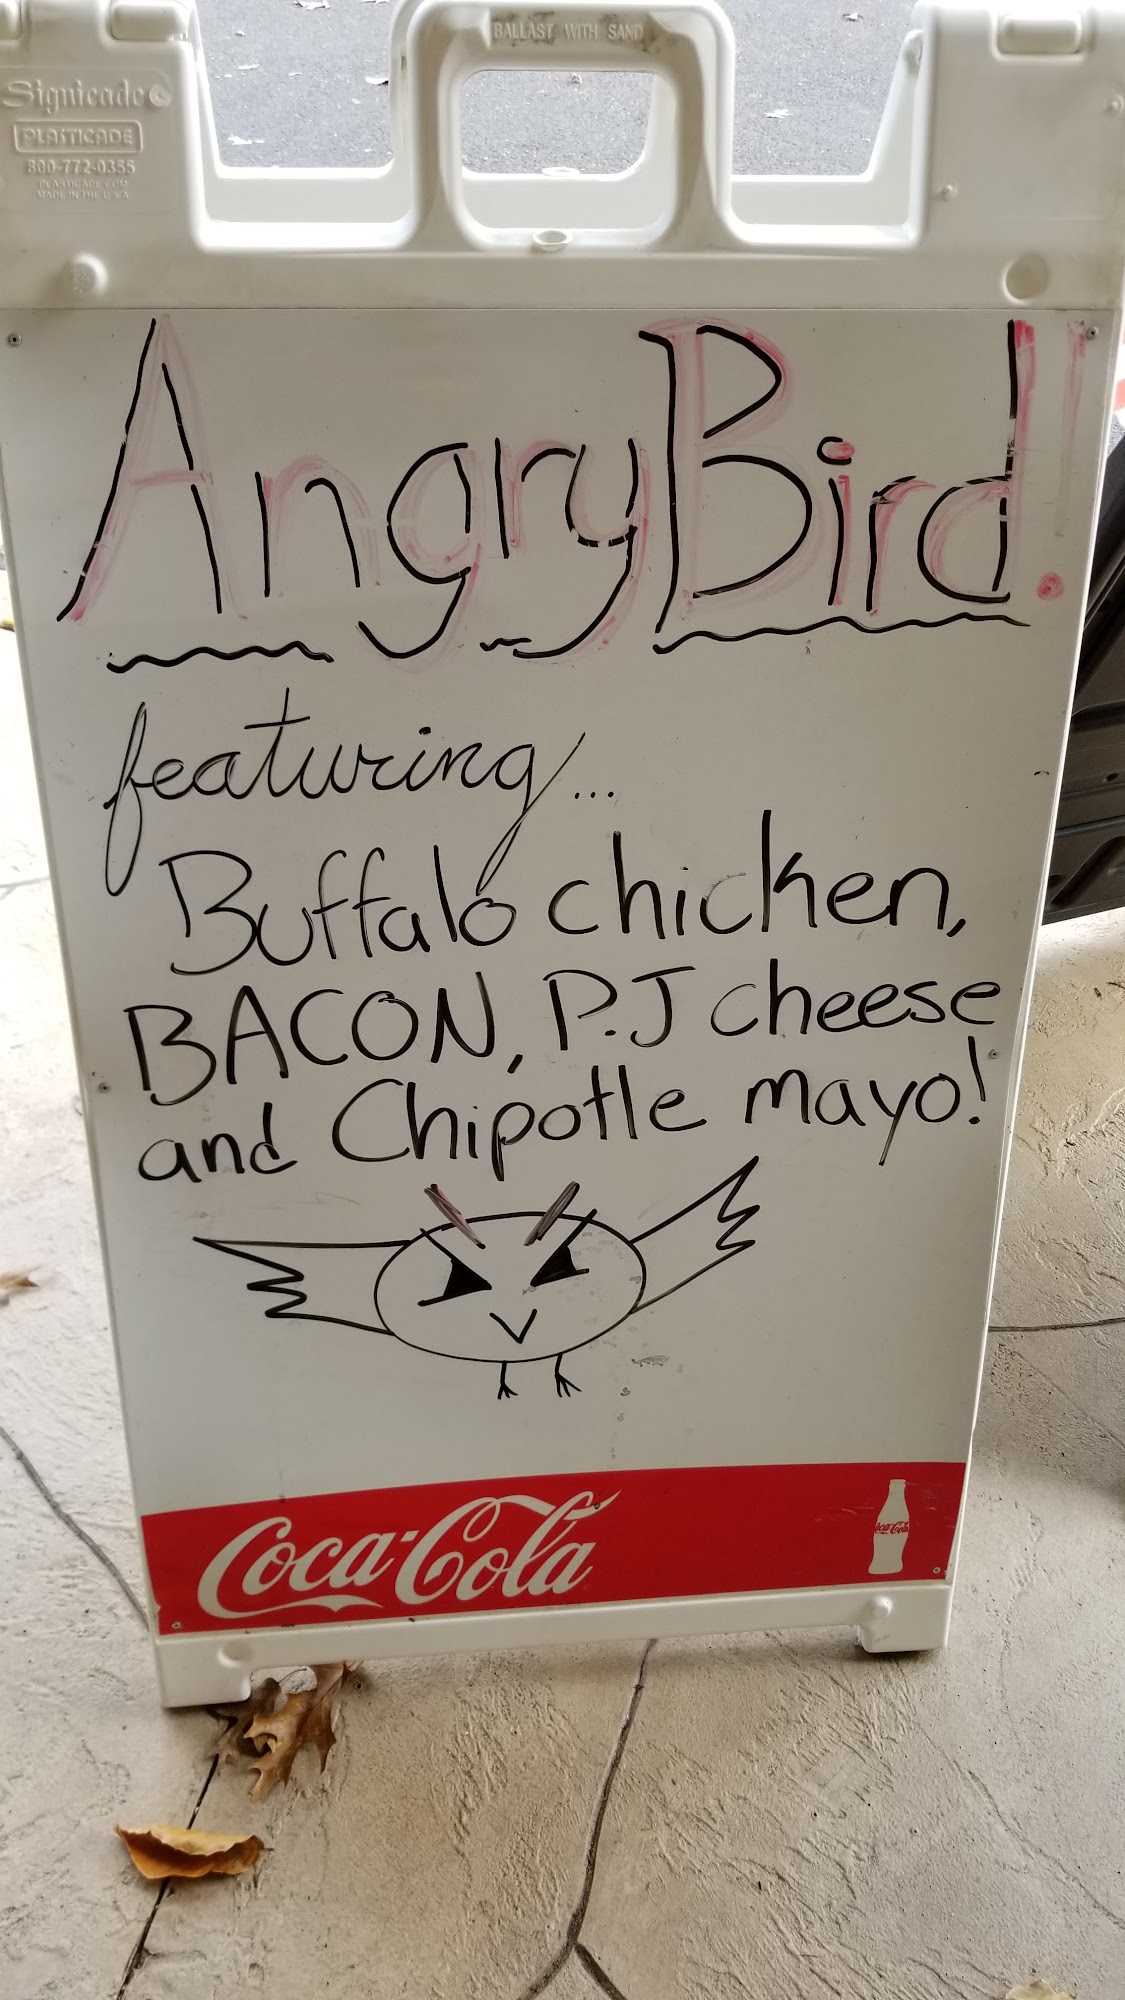 BALLAST WITH SAND
Signicade
PLASTICADE
800-772-0355
PLASTICADE.COM
MADE IN THE U.S.A
Angry Bird!
featuring...
Buffalo chicken,
BACON, P.J cheese
and Chipotle mayo!
Coca-Cola
Coca-Cola